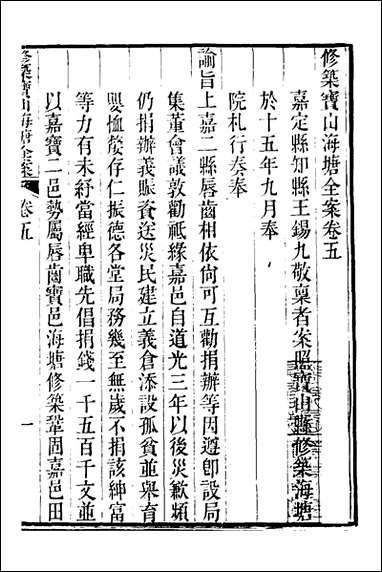 修築寶山海塘全案卷五
嘉定縣知縣王錫九敬稟者案照寶山縣修築海塘
於十五年九月奉
院札行奏奉
諭旨上嘉二縣唇齒相依尙可互勸捐辦等因遵卽設局
集董會議敦勸祇緣嘉邑自道光三年以後災歉頻
仍捐辦義賑資送災民建立義倉添設孤貧並舉育
嬰恤嫠存仁振德各堂局務幾至無歲不捐該紳富
等力有未紓當經卑職先倡捐錢一千五百千文並
以嘉寶二邑勢屬唇齒寶邑海塘修築鞏固嘉邑田
修築寶山海塘全案
卷五
一